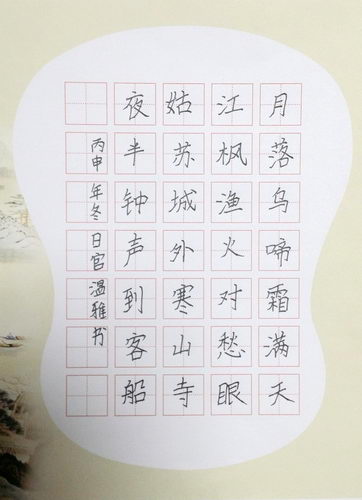 月落乌啼霜满天
江枫渔火对愁眼
姑苏城外寒山寺
夜半钟声到客船
丙申年冬日官温雅书